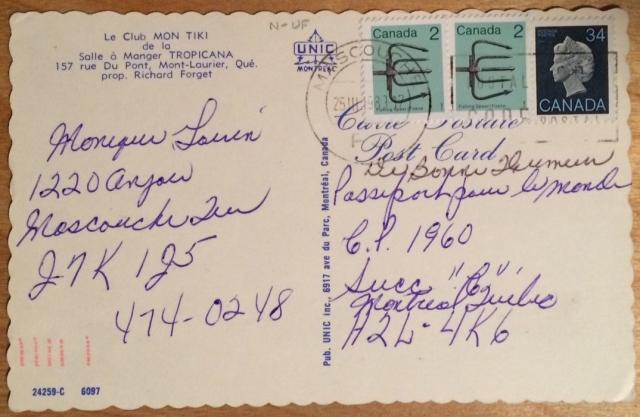 Le Club MON TIKI
de la
Salle à Manger TROPICANA
157 rue Du Pont, Mont-Laurier, Qué.
prop. Richard Forget
N-UF
UNIC
MONTRÉAL
Canada 2
Canada 2
34
CANADA
Carte Postale
Post Card
De Bonne Humeur
Passeport pour le monde
C.P. 1960
Succ "C",
Montréal Québec
H2L-4K6
Monique
1220 Anjou
J7K 1J5
474-0248
Pub. UNIC inc., 6917 ave du Parc, Montréal, Canada
24259-C 6097